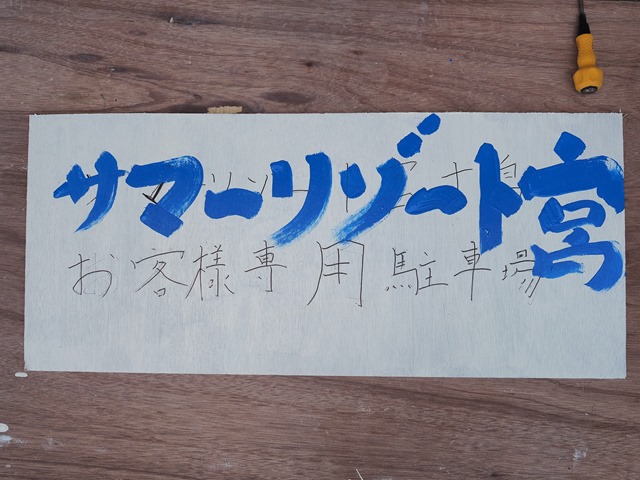 サマーリゾート宮
お客様専用駐車場